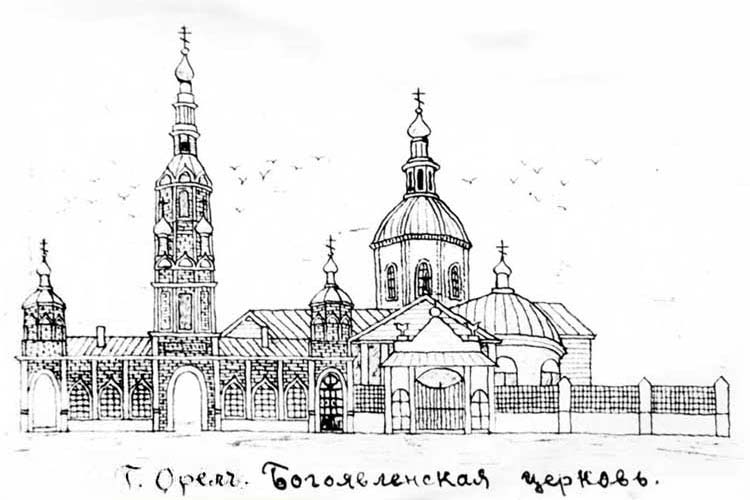 Г. Орелъ. Богоявленская церковь.